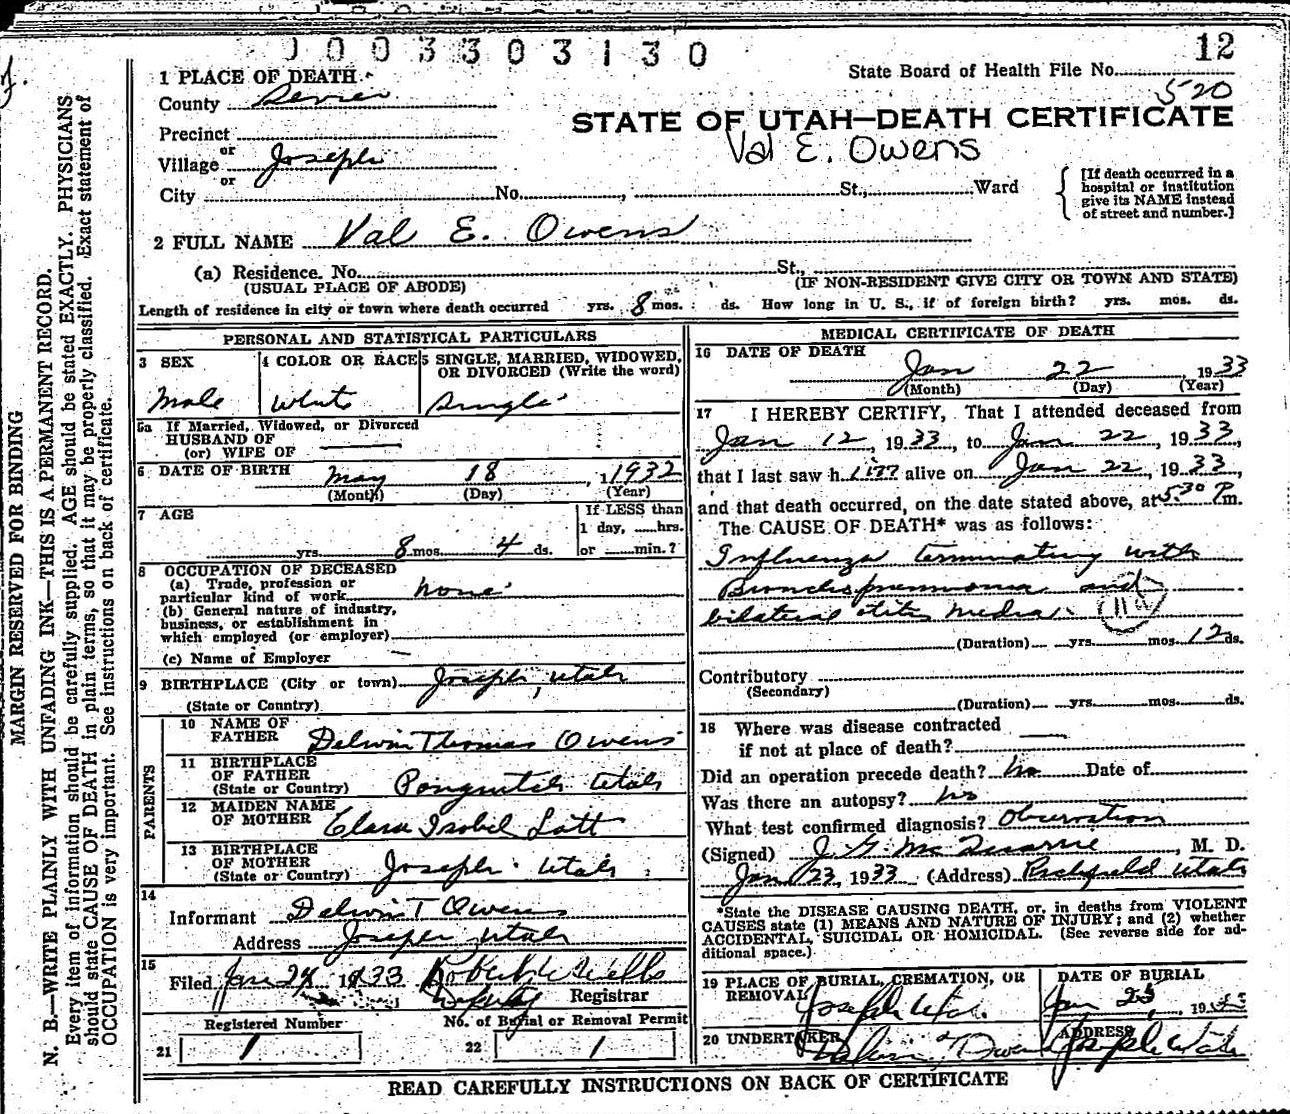 0003303130
12
1 PLACE OF DEATH
State Board of Health File No.
520
County Sevier
STATE OF UTAH—DEATH CERTIFICATE
Val E. Owens
Precinct
or
Village Joseph
or
City No. , St., Ward
[If death occurred in a
hospital or institution
give its NAME instead
of street and number.]
2 FULL NAME Val E. Owens
(a) Residence. No. St.,
(USUAL PLACE OF ABODE) (IF NON-RESIDENT GIVE CITY OR TOWN AND STATE)
Length of residence in city or town where death occurred yrs. 8 mos. ds. How long in U. S., if of foreign birth? yrs. mos. ds.
PERSONAL AND STATISTICAL PARTICULARS
3 SEX
Male
4 COLOR OR RACE
White
5 SINGLE, MARRIED, WIDOWED,
OR DIVORCED (Write the word)
Single
5a If Married, Widowed, or Divorced
HUSBAND OF
(or) WIFE OF
6 DATE OF BIRTH May 18, 1932
(Month) (Day) (Year)
7 AGE
yrs. 8 mos. 4 ds.
If LESS than
1 day, hrs.
or min.?
8 OCCUPATION OF DECEASED
(a) Trade, profession or
particular kind of work none
(b) General nature of industry,
business, or establishment in
which employed (or employer)
(c) Name of Employer
9 BIRTHPLACE (City or town) Joseph, Utah
(State or Country)
PARENTS
10 NAME OF
FATHER Delwin Thomas Owens
11 BIRTHPLACE
OF FATHER
(State or Country) Panguitch Utah
12 MAIDEN NAME
OF MOTHER Clara Isobel Lott
13 BIRTHPLACE
OF MOTHER
(State or Country) Joseph Utah
14
Informant Delwin T Owens
Address Joseph, Utah
15
Filed Jan 24 1933
Registrar
Registered Number
21 1
No. of Burial or Removal Permit
22 1
MEDICAL CERTIFICATE OF DEATH
16 DATE OF DEATH
Jan 22, 1933
(Month) (Day) (Year)
17 I HEREBY CERTIFY, That I attended deceased from
Jan 12, 1933, to Jan 22, 1933,
that I last saw him alive on Jan 22, 1933,
and that death occurred, on the date stated above, at 5:30 P.m.
The CAUSE OF DEATH* was as follows:
Influenza terminating with
Bronchopneumonia and
bilateral otitis media
(Duration) yrs. mos. 12 ds.
Contributory
(Secondary)
(Duration) yrs. mos. ds.
18 Where was disease contracted
if not at place of death?
Did an operation precede death? No Date of
Was there an autopsy? No
What test confirmed diagnosis? Observation
(Signed) J. G. McQuarrie, M. D.
Jan 23, 1933 (Address) Richfield Utah
*State the DISEASE CAUSING DEATH, or, in deaths from VIOLENT
CAUSES state (1) MEANS AND NATURE OF INJURY; and (2) whether
ACCIDENTAL, SUICIDAL OR HOMICIDAL. (See reverse side for ad-
ditional space.)
19 PLACE OF BURIAL, CREMATION, OR
REMOVAL Joseph Utah
DATE OF BURIAL
Jan 25, 1933
20 UNDERTAKER Delwin T Owens
ADDRESS
Joseph Utah
READ CAREFULLY INSTRUCTIONS ON BACK OF CERTIFICATE
MARGIN RESERVED FOR BINDING
N. B.—WRITE PLAINLY WITH UNFADING INK—THIS IS A PERMANENT RECORD.
Every item of information should be carefully supplied. AGE should be stated EXACTLY. PHYSICIANS
should state CAUSE OF DEATH in plain terms, so that it may be properly classified. Exact statement of
OCCUPATION is very important. See instructions on back of certificate.